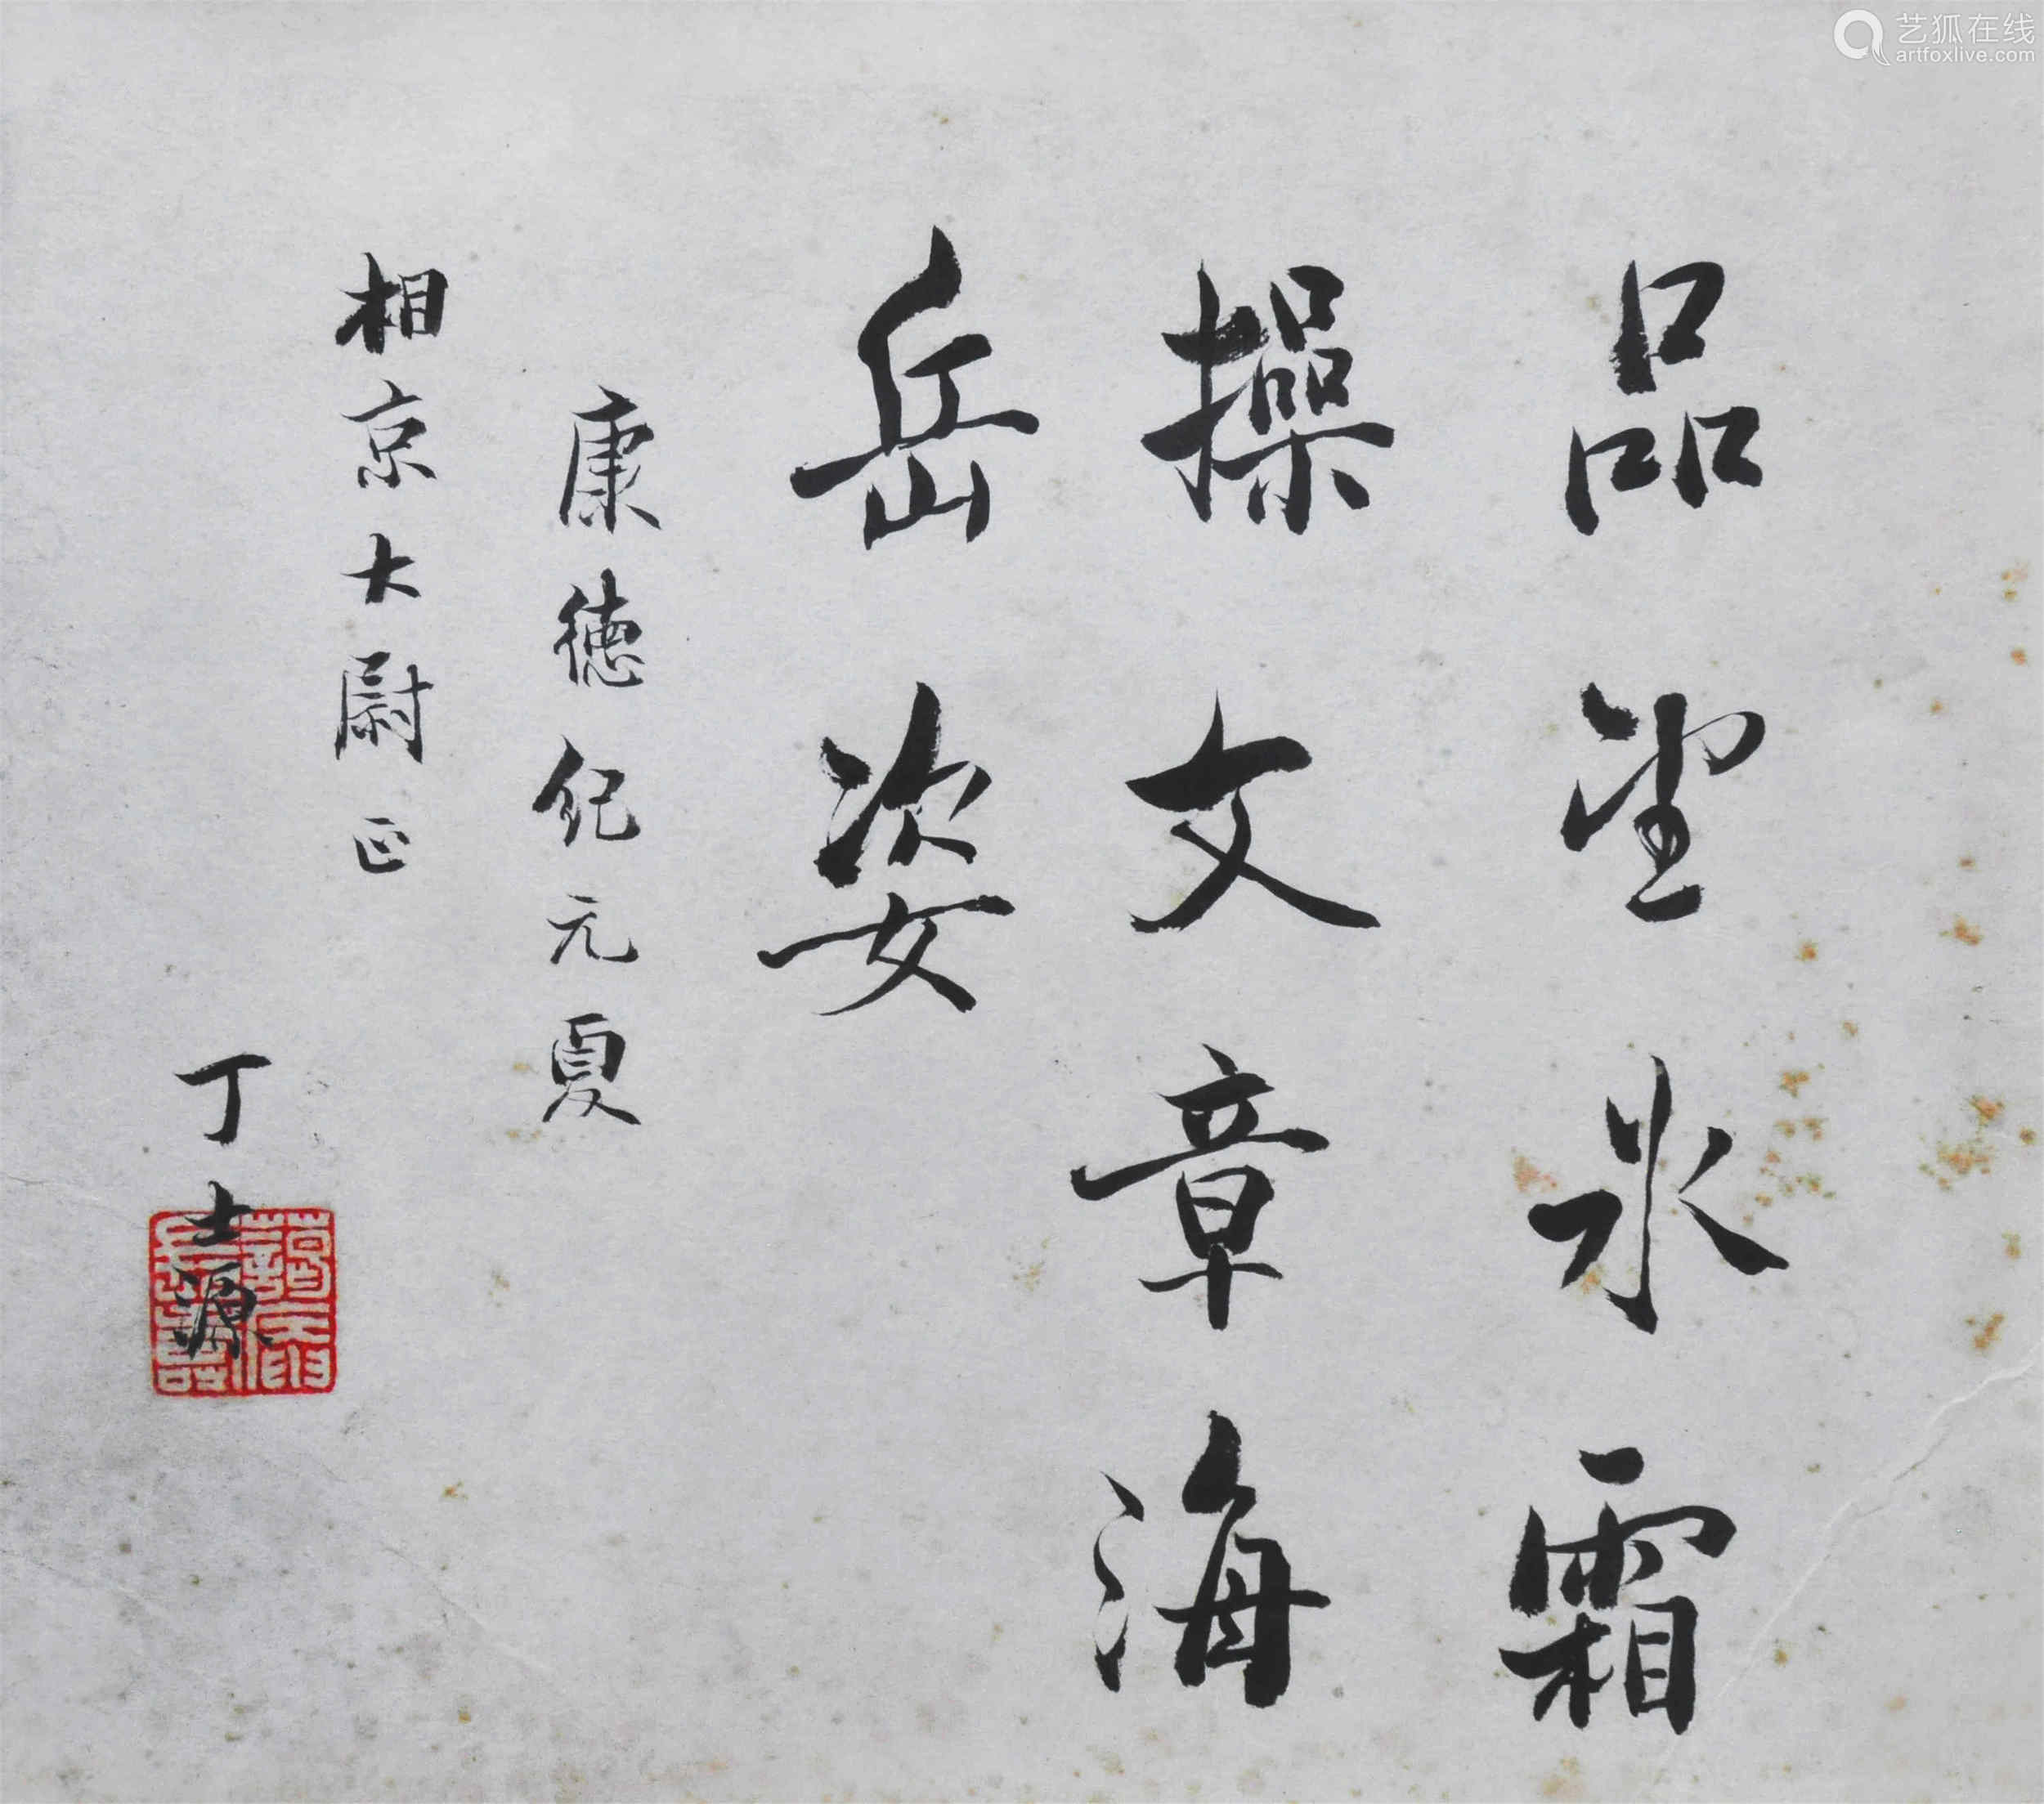 品望冰霜
操文章海
岳姿
康德纪元夏
相京大尉正
丁士源
艺狐在线
artfoxlive.com